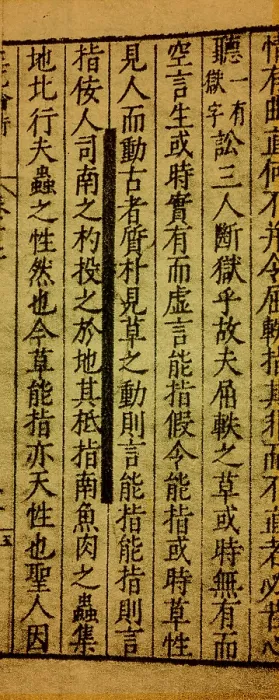 情有曲直何不并令屈軼指其非而不直者必苦心
聽一有獄字訟三人斷獄乎故夫屈軼之草或時無有而
空言生或時實有而虛言能指假令能指或時草性
見人而動古者質朴見草之動則言能指能指則言
指佞人司南之杓投之於地其柢指南魚肉之蟲集
地北行夫蟲之性然也今草能指亦天性也聖人因